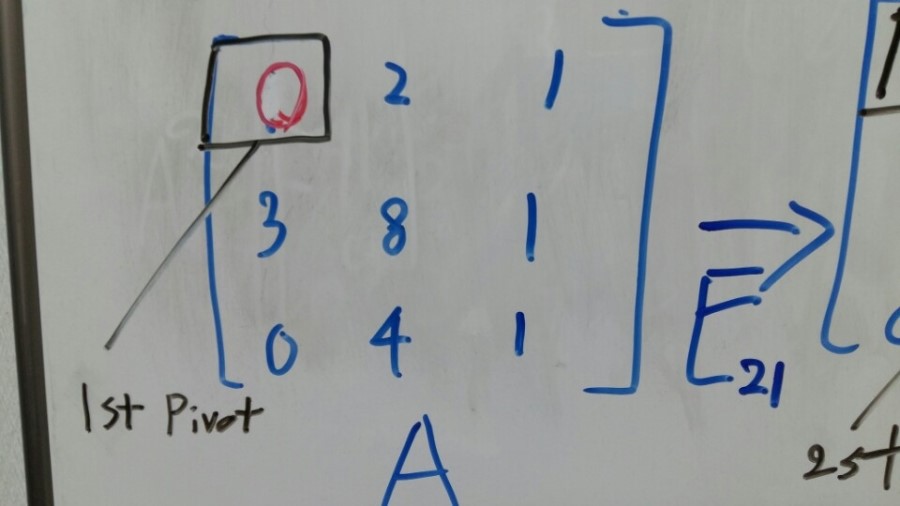 0 2 1
3 8 1
0 4 1
E21
1st Pivot
A